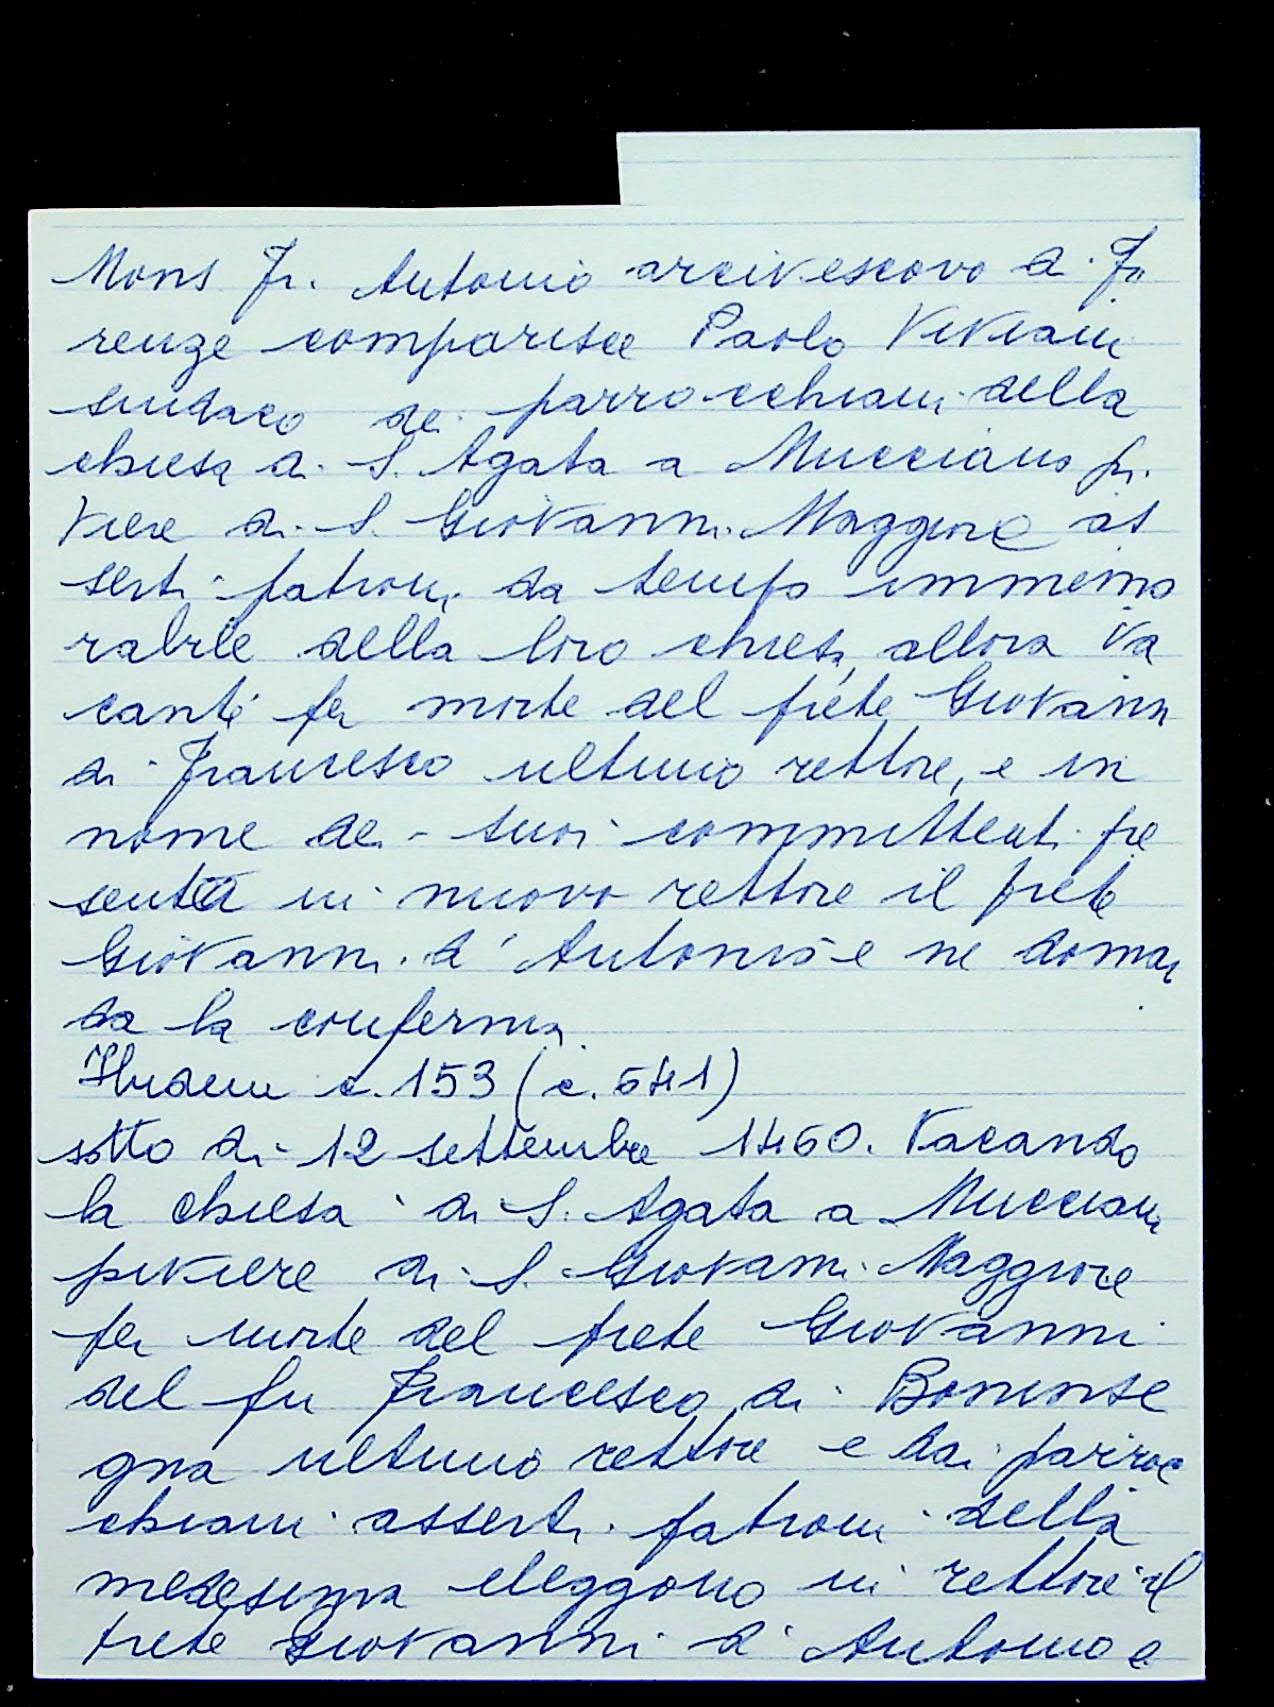 Mons Fr. Antonio arcivescovo di Fo
renze comparisce Paolo Viviani
sindaco dei parrocchiani della
chiesa di S. Agata a Mucciano pi
viere di S. Giovanni Maggiore as
serti patroni da tempo immemo
rabile della loro chiesa allora va
cante per morte del prete Giovanni
di Francesco ultimo rettore, e in
nome dei suoi committenti pre
senta in nuovo rettore il prete
Giovanni d'Antonio e ne doman
da la conferma
Ibidem c. 153 (c. 541)
sotto di 12 settembre 1460. Vacando
la chiesa di S. Agata a Mucciano
piviere di S. Giovanni Maggiore
per morte del prete Giovanni
del fu Francesco di Boninse
gna ultimo rettore e dai parroc
chiani asserti patroni della
medesima eleggono in rettore il
prete Giovanni d'Antonio e